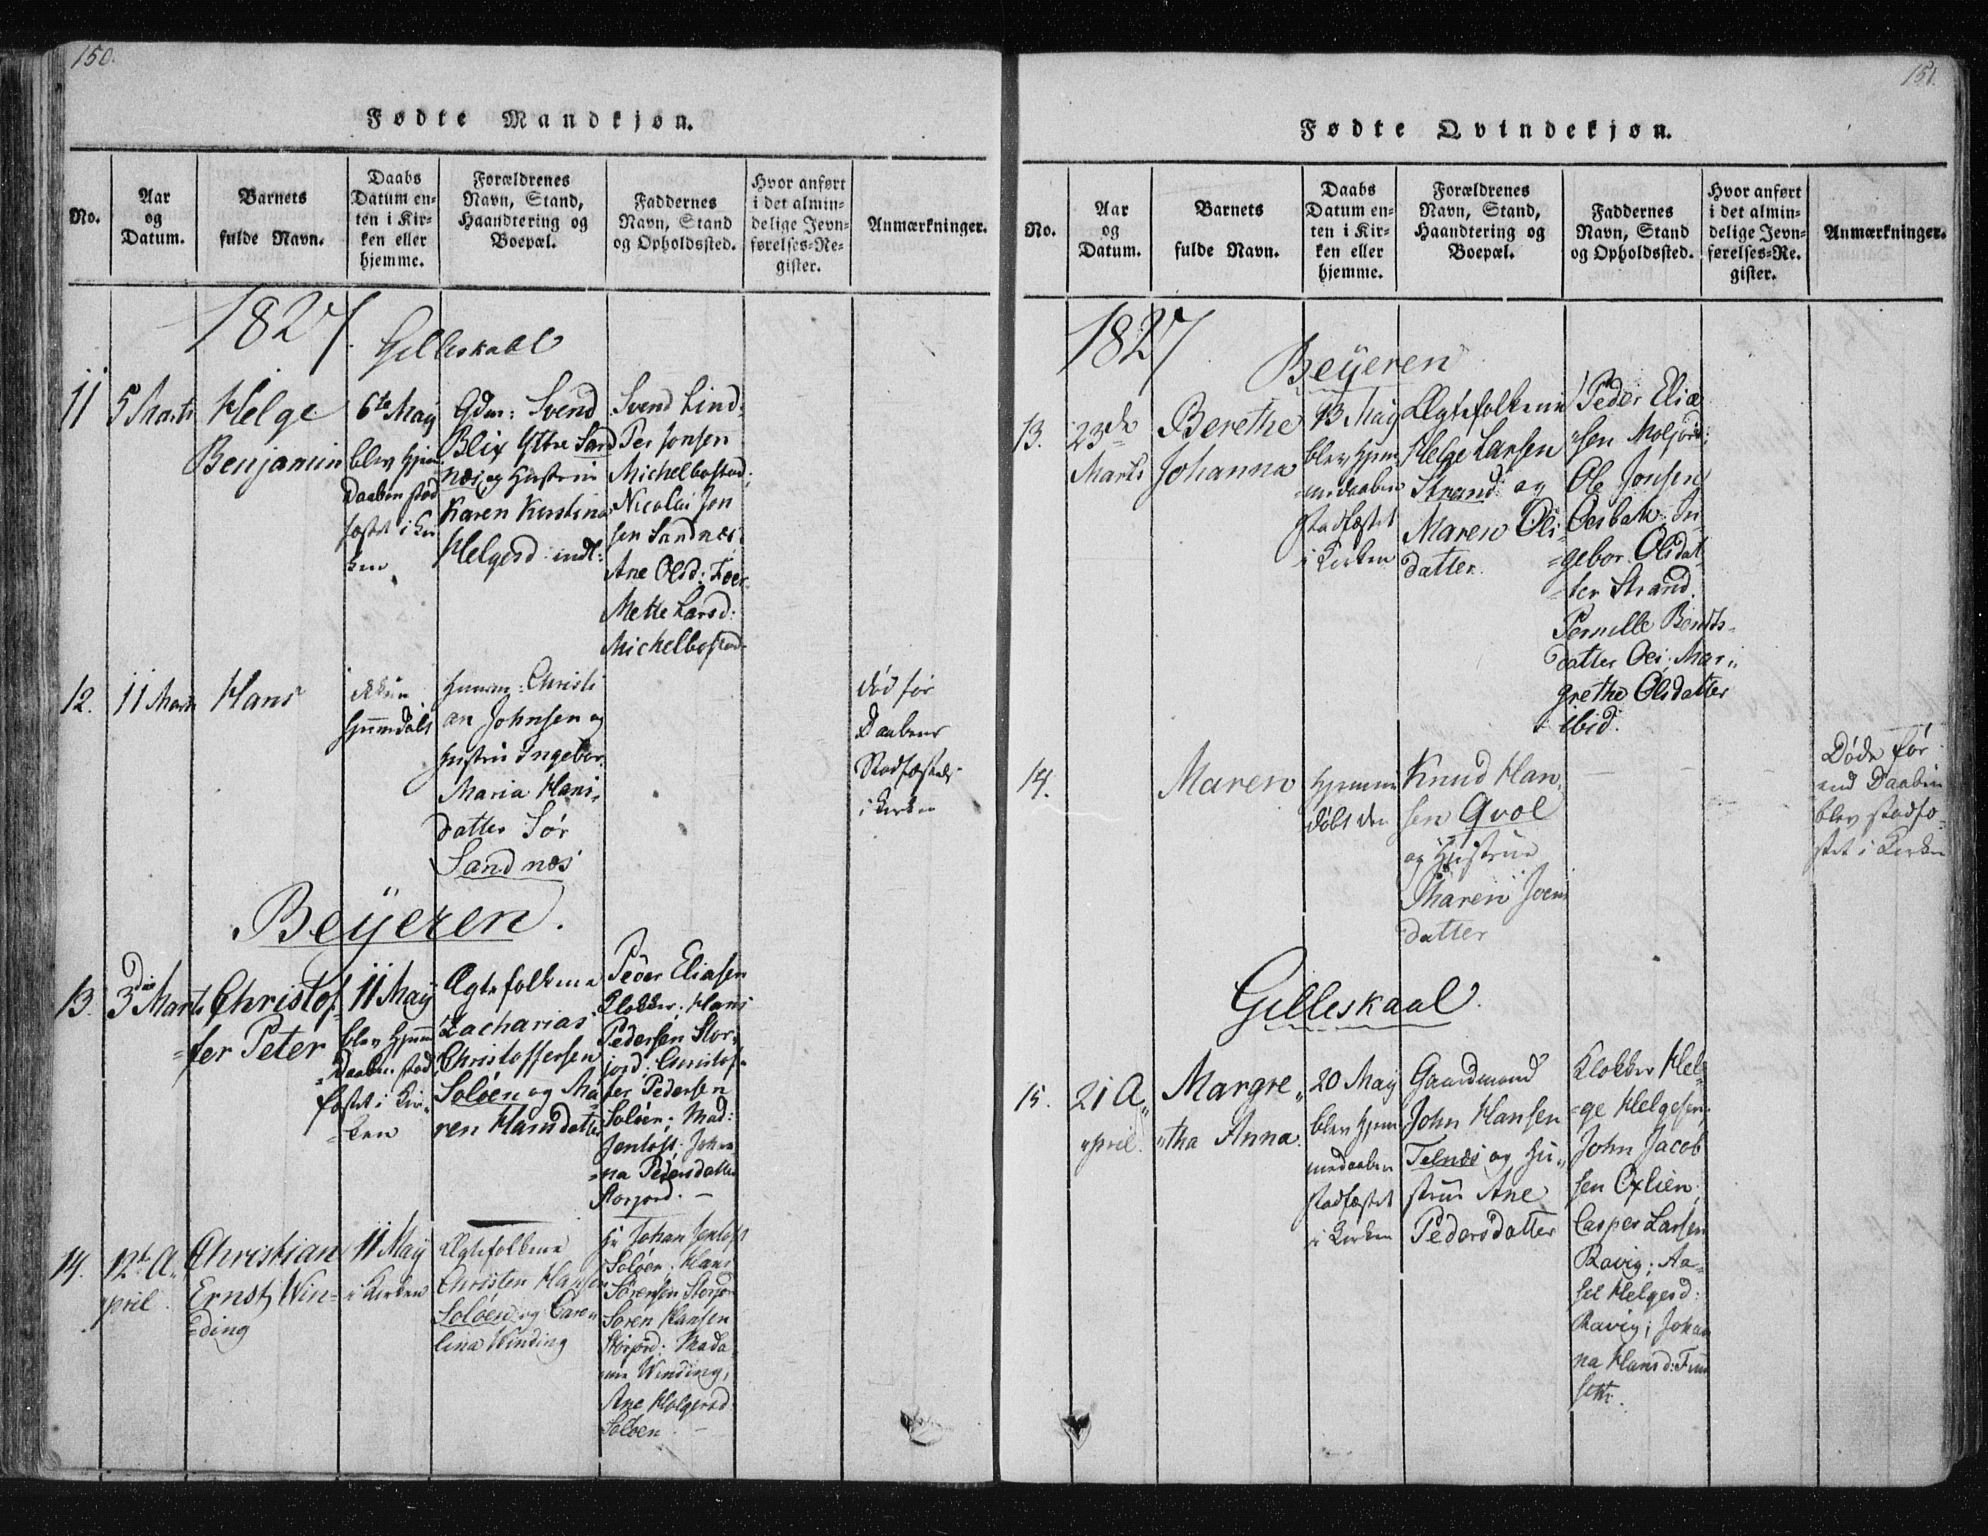 150.
Fødte Mandkjøn.
No.
Aar
og
Datum.
Barnets
fulde Navn.
Daabs
Datum en-
ten i Kir-
ken eller
hjemme.
Forældrenes
Navn, Stand,
Haandtering og
Boepæl.
Faddernes
Navn, Stand
og Opholdssted.
Hvor anført
i det almin-
delige Jevn-
førelses-Re-
gister.
Anmærkninger.
1827.
Gilleskaal
11
5 Marts
Helge
Benjamin
6te May
blev hjem
Daaben stad
fæstet i Kir
ken
Gdm: Svend
Blix Yttre Sand
næs og Hustrue
Karen Kirstina
Helgesd: indl:
Svend Lind:
Per Jonsen
Michelbostad;
Nicolai Jon
sen Sandnæs:
Ane Olsd:
Mette Larsd:
Michelbostad
12.
11 Marts
Hans
hjemdøbt
Christi
an Johnsen og
Hustru Ingebor
Maria Hans,
datter Sør
Sandnæs
død før
Daabens
Stadfæstelse
i Kirken
Beÿeren.
13.
3die Marts
Christof
=fer Peter
11 May
blev hjem
=Daaben stad
fæstet i Kir=
=ken
Ægtefolkene
Zacharias
Christoffersen
Soløen og Ma
ren Hansdatter
Peder Eliasen
Klokker; Hans
Pedersen Stor
jord; Christof
fer Pedersen
Soløen; Mad:
Jentoft; Johan
=na Pedersdatter
Storjord. —
14.
12te A
pril
Christian
Ernst Win=
=ding
11 May
i Kirken
Ægtefolkene
Christen Hansen
Soløen og Care
lina Winding
Hr Johan Jentoft
Soløen. Hans
Sørensen Storjor
Søren Hansen
Storjord: Mada
me Winding,
Ane Holgersd
Soløen. —
151.
Fødte Qvindekjøn.
No.
Aar
og
Datum.
Barnets
fulde Navn.
Daabs
Datum en-
ten i Kir-
ken eller
hjemme.
Forældrenes
Navn, Stand,
Haandtering og
Boepæl.
Faddernes
Navn, Stand
og Opholdssted.
Hvor anført
i det almin-
delige Jevn-
førelses-Re-
gister.
Anmærkninger.
1827
Beÿeren
13.
23de
Marts
Berethe
Johanna
13 May
blev hjem
medaaben
stadfæstet
i Kirken
Ægtefolkene
Helge Larsen
Strand og
Maren Ols
datter.
Peder Elia
sen Moljord:
Ole Jonsen
Oesbak: In
=gebor Olsdat
=ter Strand.
Pernille Bendts
datter Oes; Mar
grethe Olsdatter
ibid:
14.
Maren
hjemme
døbt den
Knud Han
sen Qvol
og Hustrue
Maren Joens
datter
Døde før
end Daaben
blev stadfæ
stet i Kirken
Gilleskaal.
15.
21 A
pril.
Margre
tha Anna.
20 May
blev hjem
medaaben
stadfæstet
i Kirken
Gaardmand
John Hansen
Telnæs og Hu
strue Ane
Pedersdatter
Klokker Hel
=ge Helgesen;
John Jacob
sen Oxlien;
Casper Larsen
Ravig; Aa
sel Helgesd:
Ravig; Johan
na Hansd: